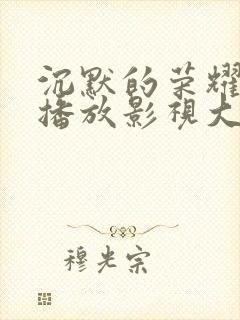 沉默的荣耀
播放影视大
穆光宗